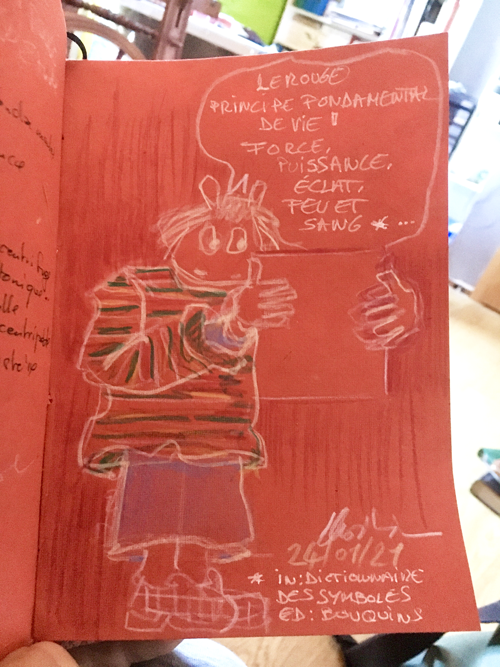 LE ROUGE
PRINCIPE FONDAMENTAL
DE VIE !
FORCE,
PUISSANCE,
ÉCLAT,
FEU ET
SANG * ...
24/01/21
* IN: DICTIONNAIRE
DES SYMBOLES
ED: BOUQUINS